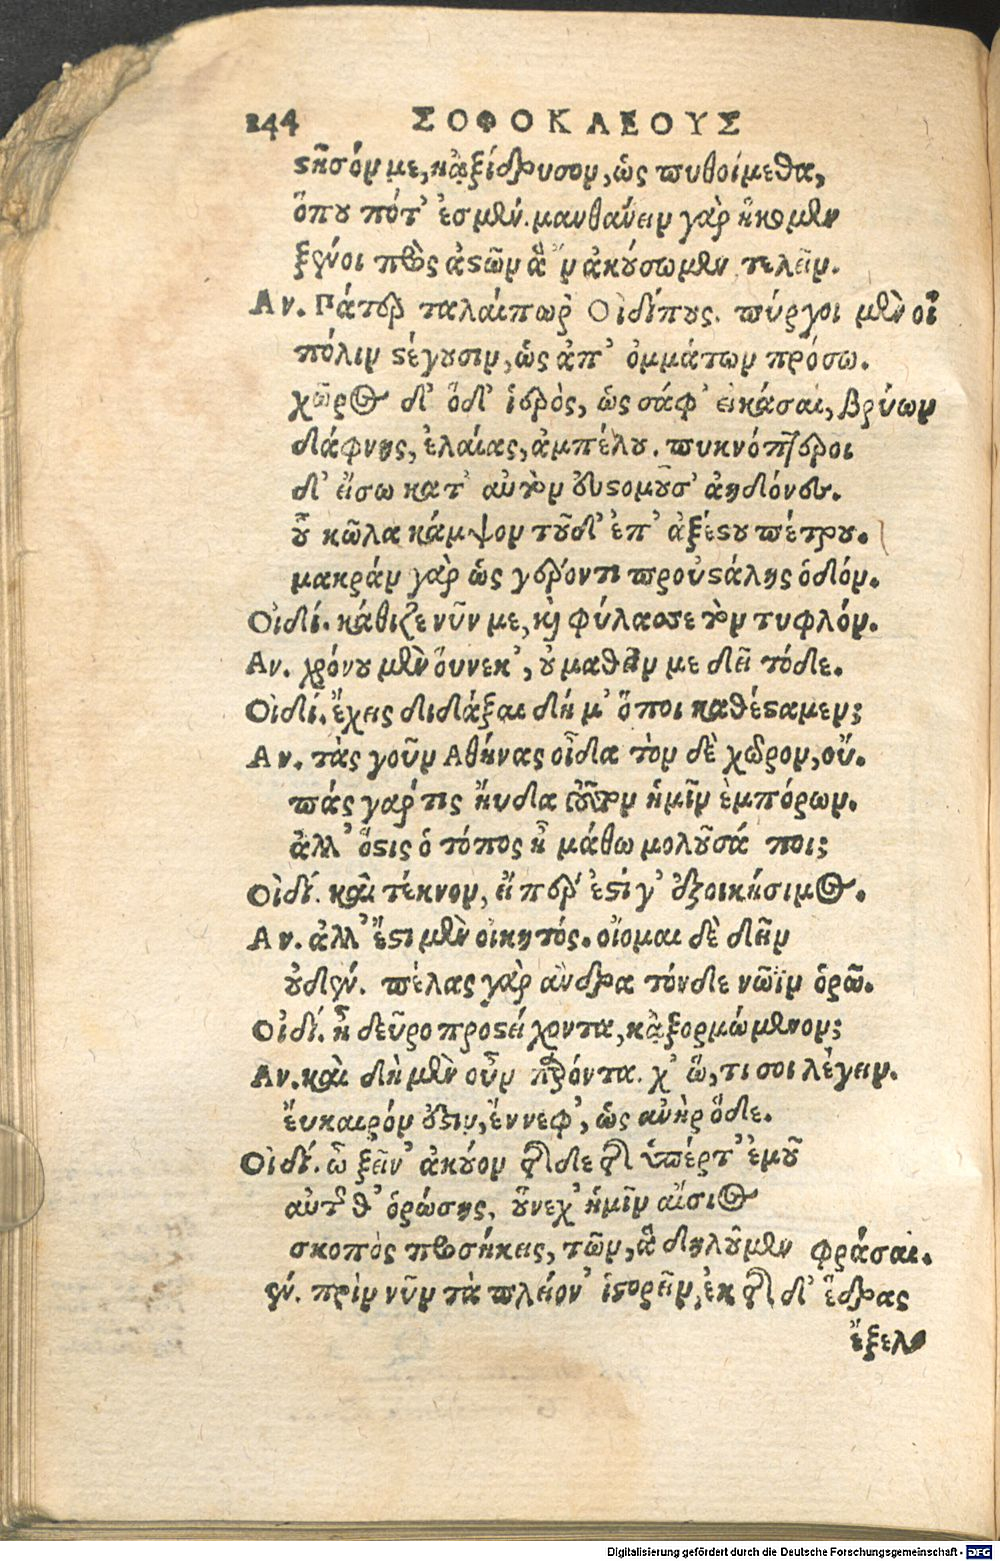 244 ΣΟΦΟΚΛΕΟΥΣ
στῆσόν με, κᾀξίδρυσον, ὡς πυθοίμεθα,
ὅπου πότ' ἐσμέν. μανθάνειν γὰρ ἥκομεν
ξένοι πρὸς ἀστῶν ἃ ἂν ἀκούσωμεν τελεῖν.
Αν. Πάτερ ταλαίπωρ' Οἰδίπους. πύργοι μὲν οἳ
πόλιν στέγουσιν, ὡς ἀπ' ὀμμάτων πρόσω.
χῶρος δ' ὅδ' ἱερὸς, ὡς σάφ' εἰκάσαι, βρύων
δάφνης, ἐλαίας, ἀμπέλου. πυκνόπτεροι
δ' εἴσω κατ' αὐτὸν εὐστομοῦσ' ἀηδόνες.
οὗ κῶλα κάμψον τοῦδ' ἐπ' ἀξέστου πέτρου.
μακρὰν γὰρ ὡς γέροντι προὐστάλης ὁδόν.
Οἰδί. κάθιζε νῦν με, καὶ φύλασσε τὸν τυφλόν.
Αν. χρόνου μὲν οὕνεκ', οὐ μαθεῖν με δεῖ τόδε.
Οἰδί. ἔχεις διδάξαι δή μ' ὅποι καθέσταμεν;
Αν. τὰς γοῦν Αθήνας οἶδα τὸν δὲ χῶρον, οὔ.
πάς γάρ τις ἤυδα τοῦτον ἡμῖν ἐμπόρων.
ἀλλ' ὅστις ὁ τόπος ἦ μάθω μολοῦσά ποι;
Οἰδί. καὶ τέκνον, εἴπερ ἐστί γ' ἐξοικήσιμος.
Αν. ἀλλ' ἔστι μὲν οἰκητός. οἴομαι δὲ δεῖν
οὐδέν. πέλας γὰρ ἄνδρα τόνδε νῶϊν ὁρῶ.
Οἰδί. ἦ δεῦρο προστείχοντα, κᾀξορμώμενον;
Αν. καὶ δὴ μὲν οὖν παρόντα. χ' ὤ, τι σοι λέγειν.
ἔυκαιρόν ἐστιν, ἔννεφ', ὡς ἀνὴρ ὅδε.
Οἰδί. ὦ ξεῖν' ἀκούον τῆσδε τῆς ὑπέρτ' ἐμοῦ
αὑτῆς θ' ὁρώσης, οὕνεχ' ἡμῖν αἴσιος
σκοπὸς προσήκεις, τῶν, ἃ δηλοῦμεν φράσαι.
ξέν. πρὶν νῦν τὰ πλείον' ἱστορεῖν, ἐκ τῆσδ' ἕδρας
ἔξελθ'